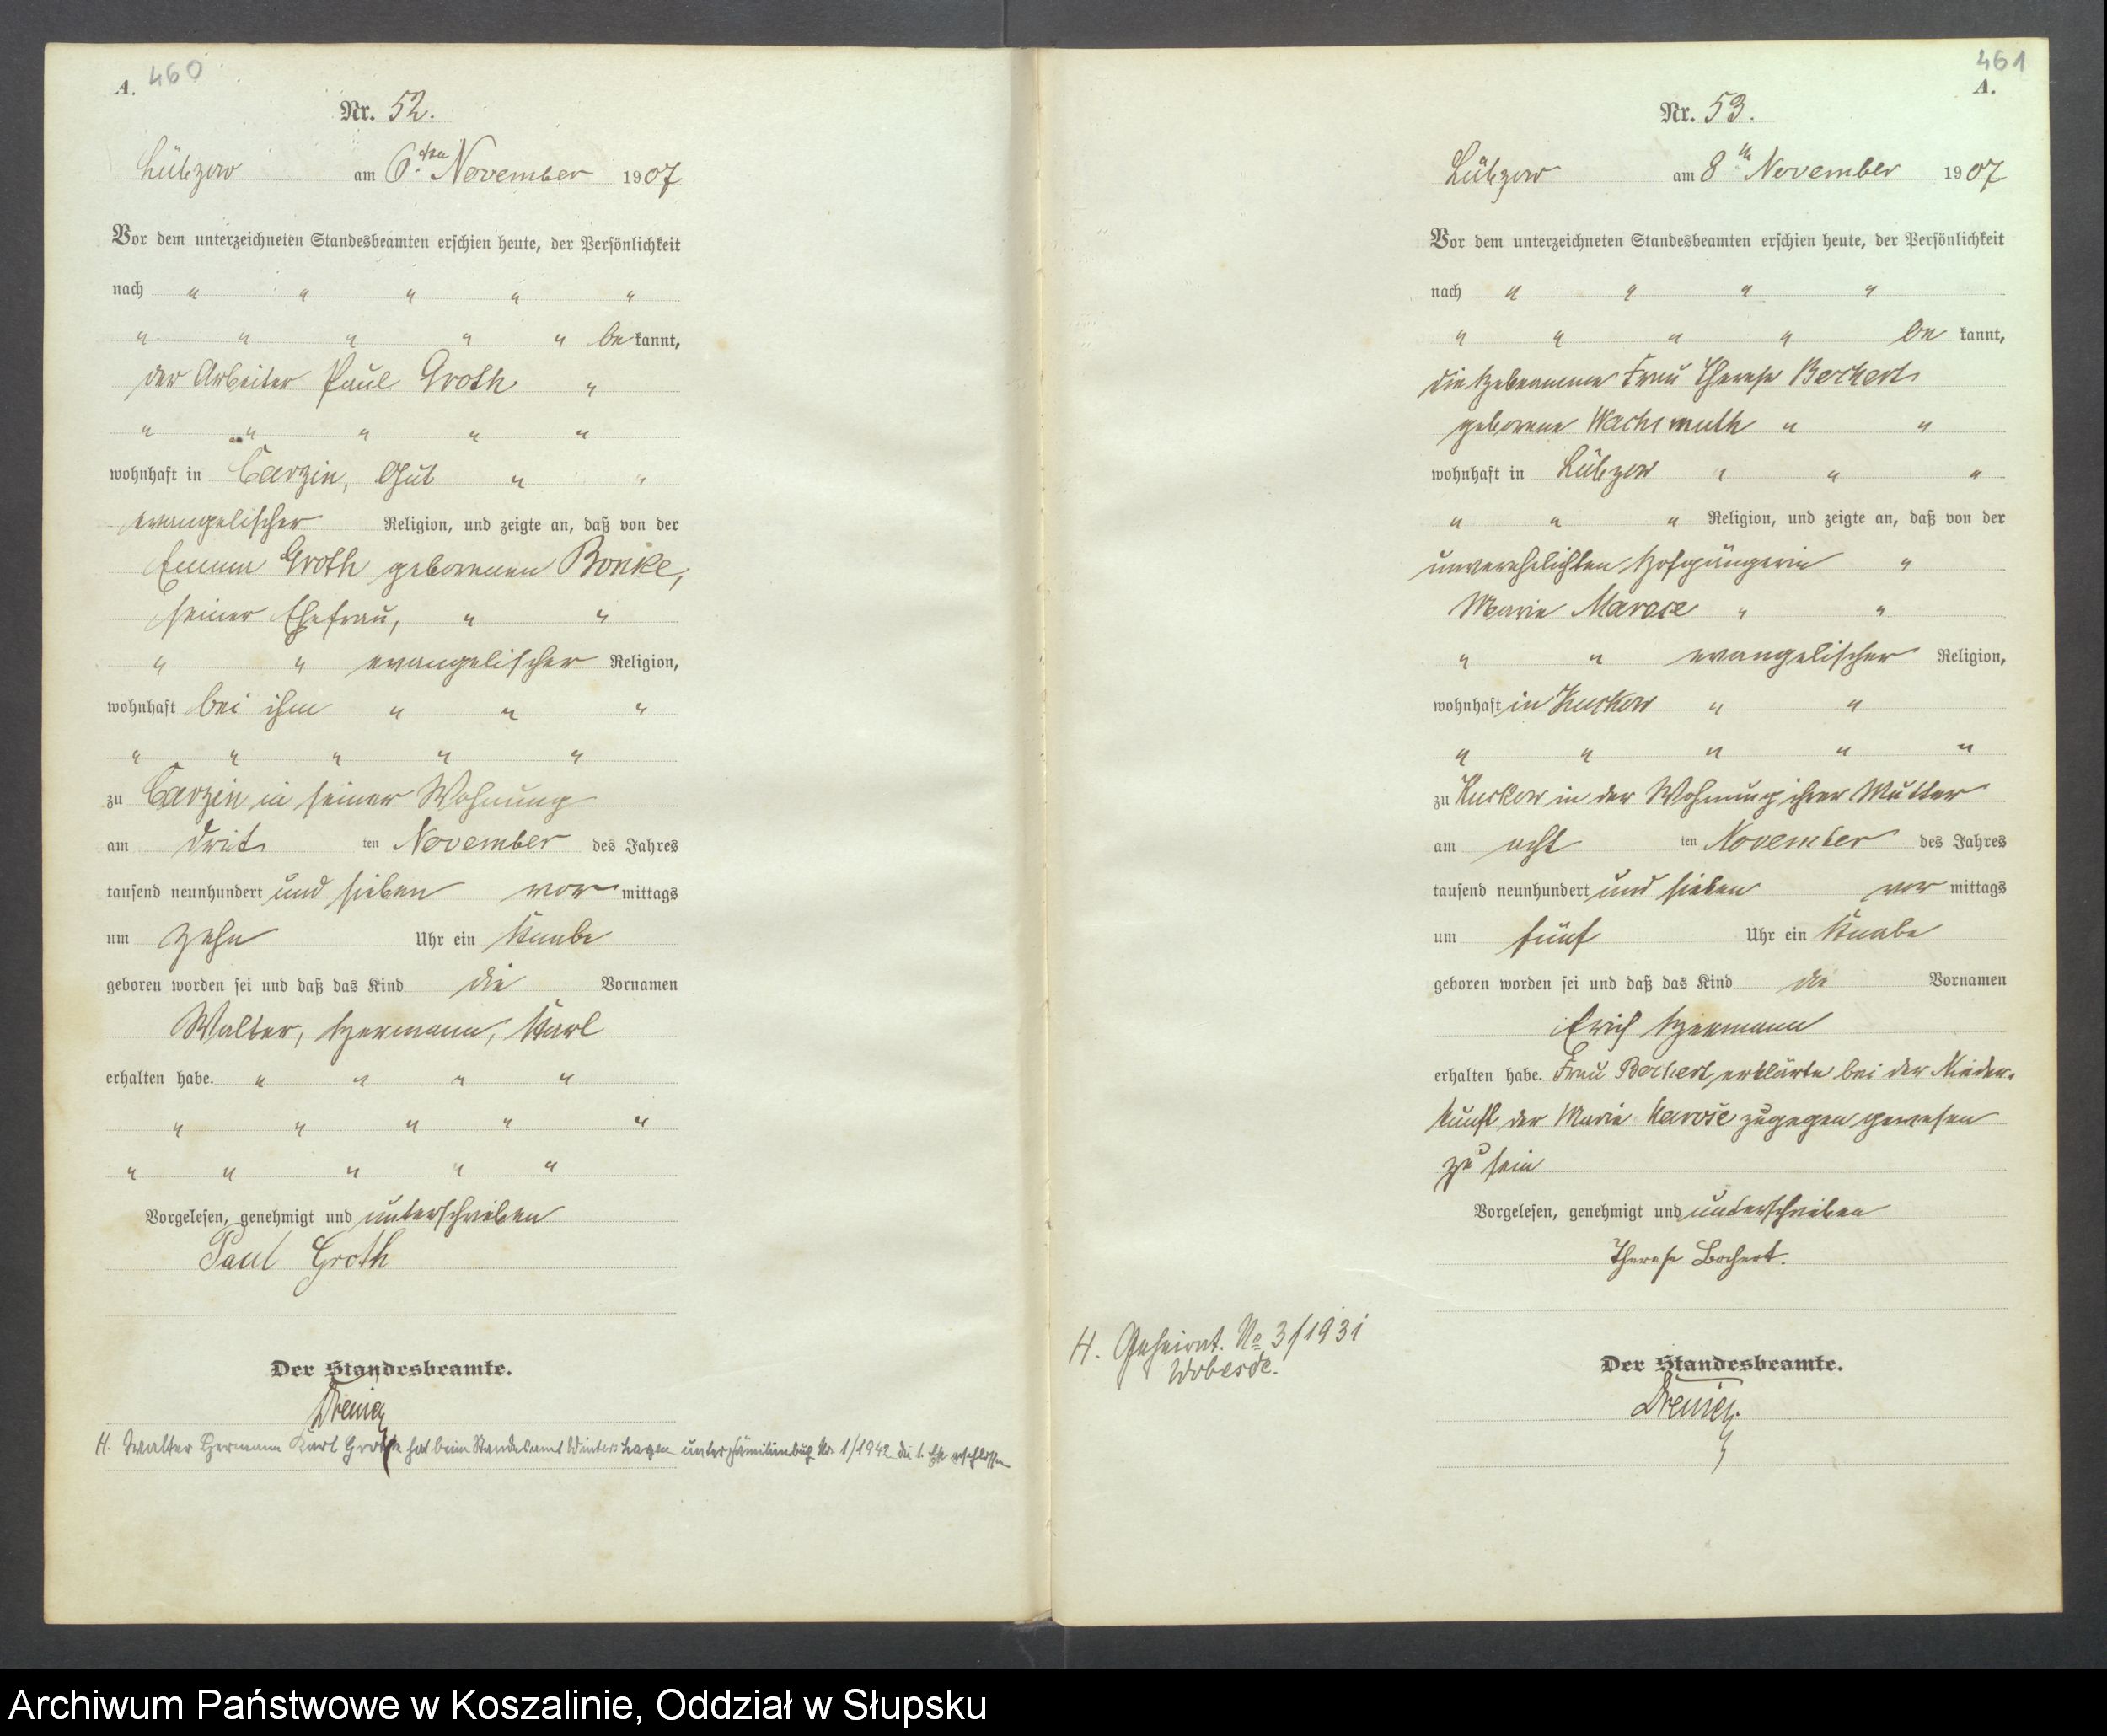 460
A.
Nr. 52.
Lübzow am 6ten November 1907
Vor dem unterzeichneten Standesbeamten erschien heute, der Persönlichkeit
nach " " " " "
" " " " " be kannt,
der Arbeiter Paul Groth "
" " " " "
wohnhaft in Carzin, Gut " "
evangelischer Religion, und zeigte an, daß von der
Emma Groth geborenen Bonke,
seiner Ehefrau, " "
" " evangelischer Religion,
wohnhaft bei ihm " " "
" " " " "
zu Carzin in seiner Wohnung
am drit ten November des Jahres
tausend neunhundert und sieben vor mittags
um zehn Uhr ein Knabe
geboren worden sei und daß das Kind die Vornamen
Walter, Hermann, Karl
erhalten habe. " " " "
" " " " "
" " " " "
Vorgelesen, genehmigt und unterschrieben
Paul Groth
Der Standesbeamte.
H. Walter Hermann Karl Groth hat beim Standesamt Wintershagen unter Familienbuch Nr. 1/1942 die 1. Ehe geschlossen
461
A.
Nr. 53.
Lübzow am 8ten November 1907
Vor dem unterzeichneten Standesbeamten erschien heute, der Persönlichkeit
nach " " " "
" " " " be kannt,
die Hebeamme Frau Therese Bochert
geborene Wachsmuth " "
wohnhaft in Lübzow " " "
" " " Religion, und zeigte an, daß von der
unverehelichten Hofgängerin "
Marie " "
" " evangelischer Religion,
wohnhaft in Kuskow " "
" " " " "
zu Kuskow in der Wohnung ihrer Mutter
am acht ten November des Jahres
tausend neunhundert und sieben vor mittags
um fünf Uhr ein Knabe
geboren worden sei und daß das Kind die Vornamen
Erich Hermann
erhalten habe. Frau Bochert erklärte bei der Nieder-
kunft der Marie zugegen gewesen
zu sein
Vorgelesen, genehmigt und unterschrieben
Therese Bochert.
H. Geheirat. No 3/1931
Wobesde.
Der Standesbeamte.
Archiwum Państwowe w Koszalinie, Oddział w Słupsku